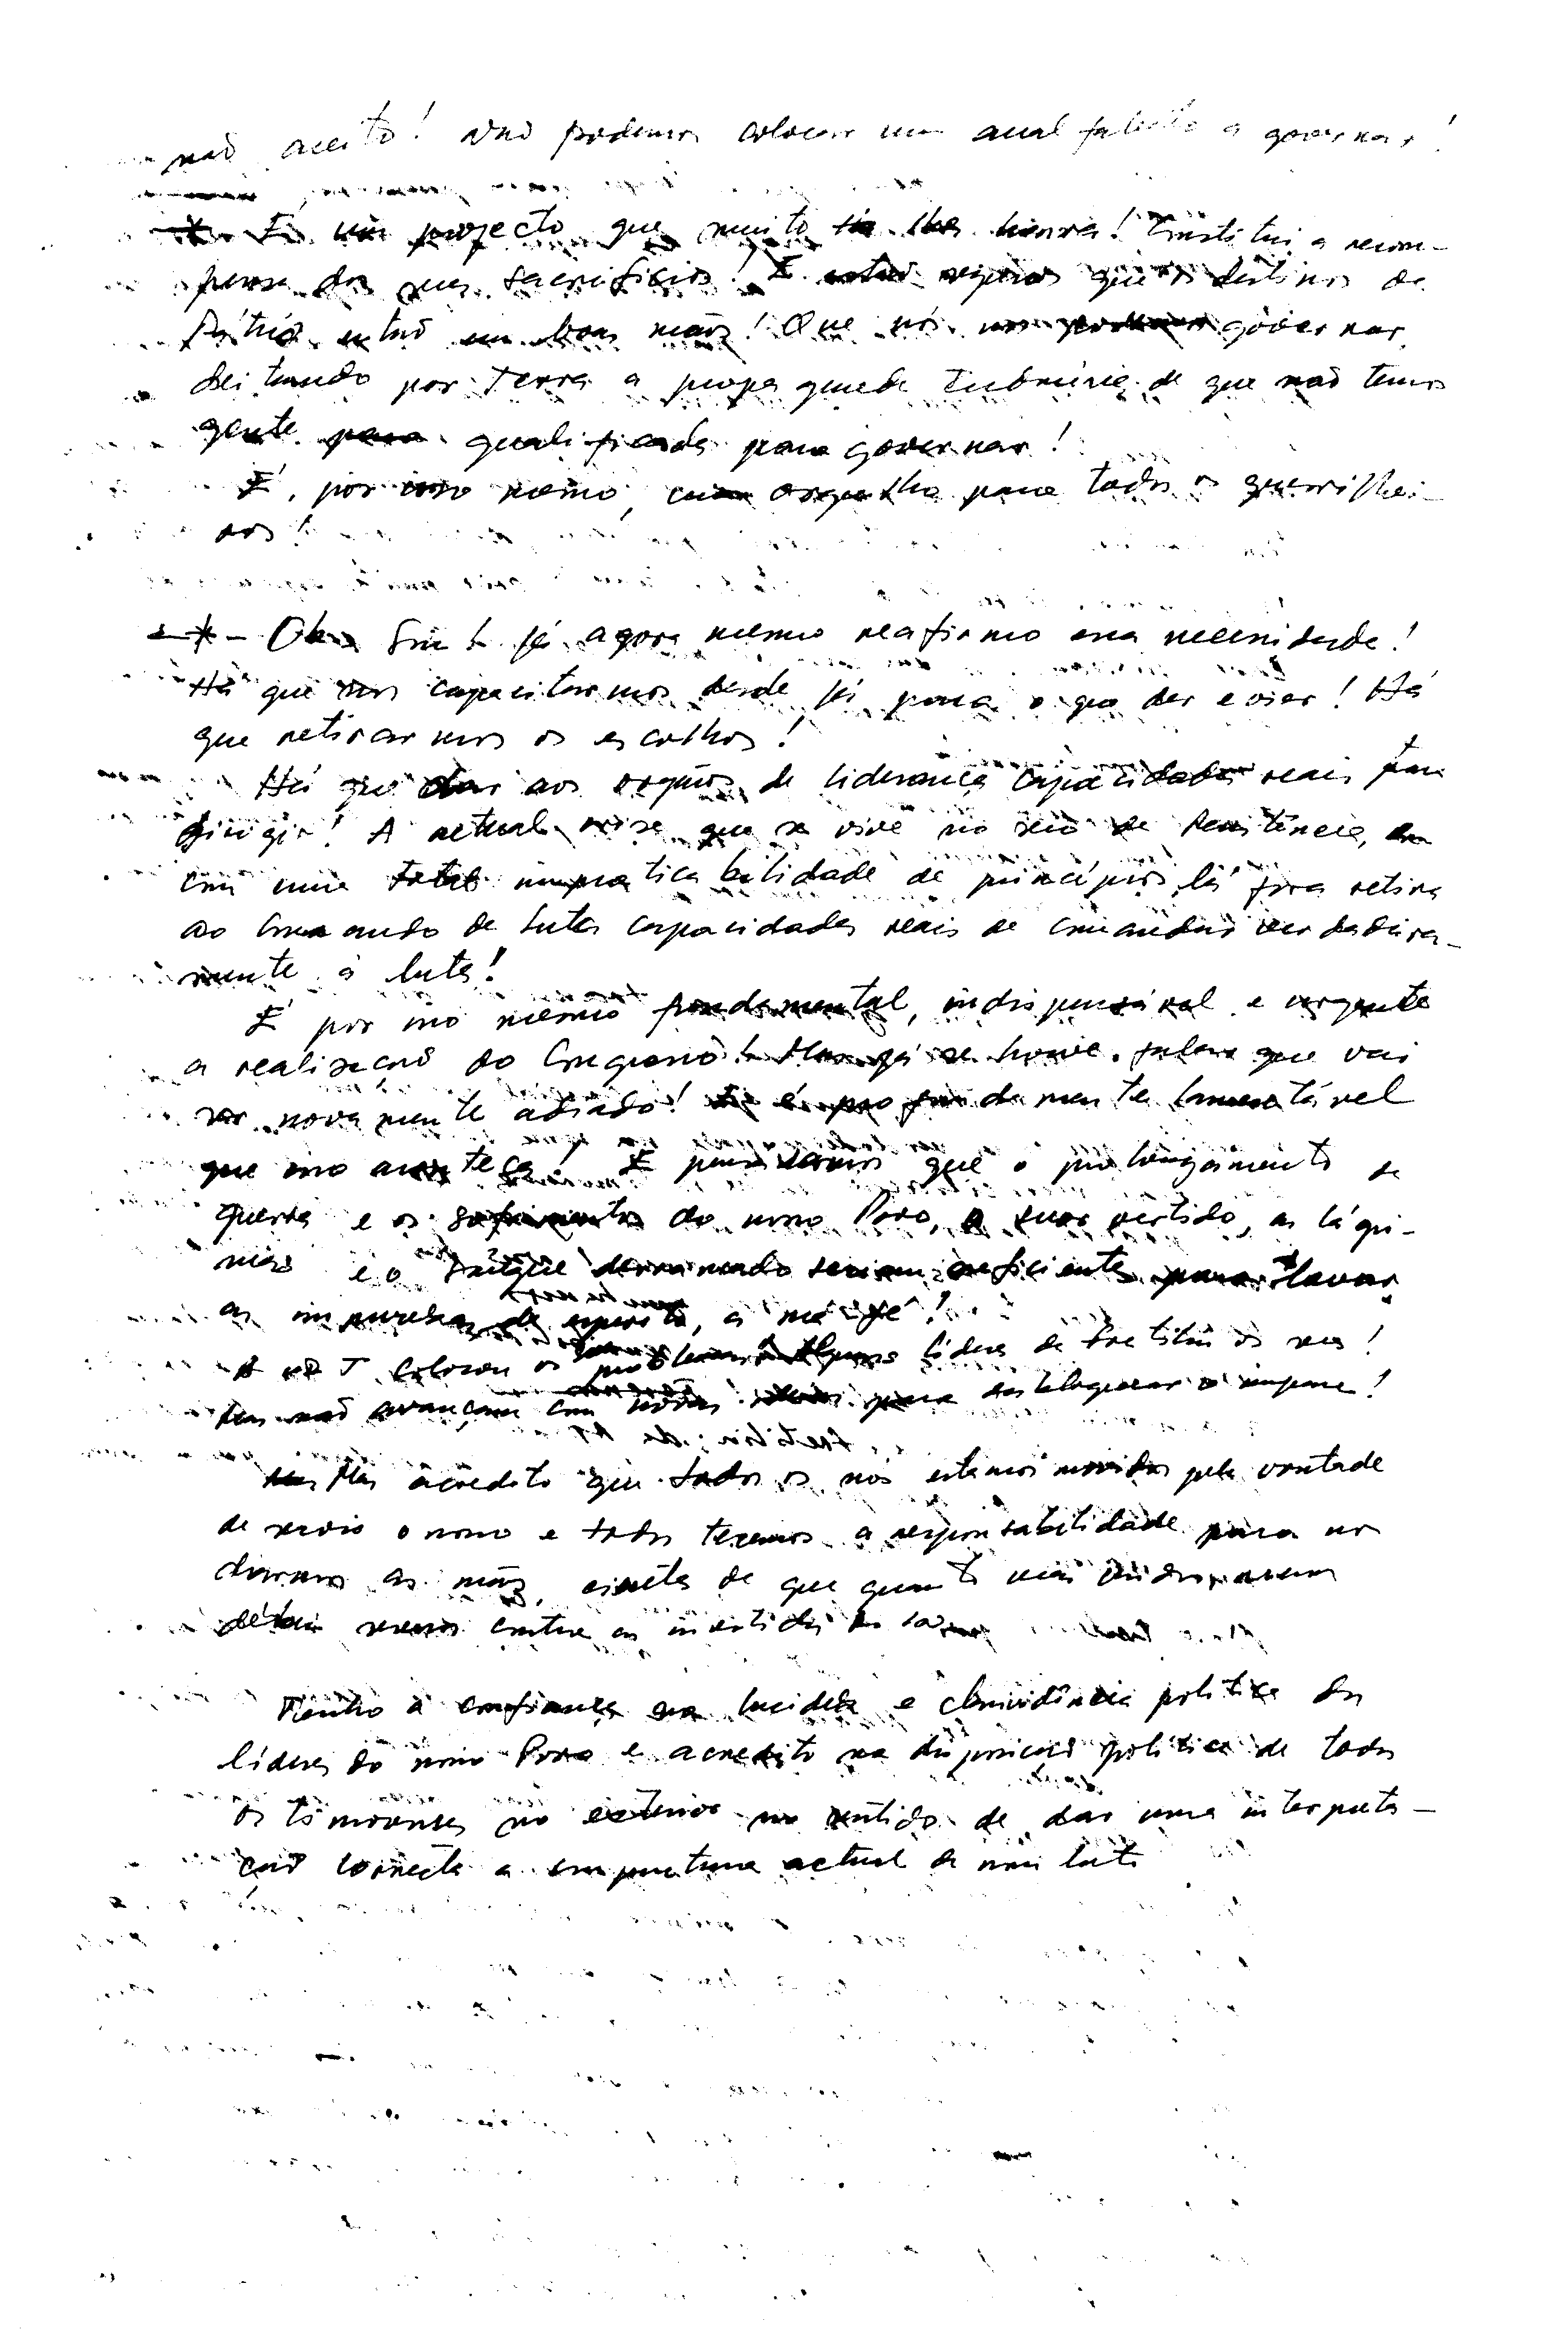 não aceito! Não podemos colocar um analfabeto a governar!
É um projecto que muito lhes honra! Constitui a recom-
pensa dos seus sacrifícios! E estão seguros que os destinos da
Pátria estão em boas mãos! Que nós governar,
deitando por terra a propaganda indonésia de que não temos
gente qualificada para governar!
É, por isso mesmo, um orgulho para todos os guerrilhei-
ros!
- Sim! já agora mesmo reafirmo essa necessidade!
Há que nos capacitarmos desde já para o que der e vier! Há
que retirarmos os escolhos!
Há que dar aos orgãos de liderança capacidades reais para
dirigir! A actual crise que se vive no seio da Resistência,
com uma total impraticabilidade de princípios lá fora retira
ao Comando da Luta capacidades reais de comandar verdadeira-
mente a luta!
É por isso mesmo fundamental, indispensável e urgente
a realização do Congresso! Mas já se houve falar que vai
ser novamente adiado! É profundamente lamentável
que isso aconteça! E pensávamos que o prolongamento da
guerra e os sofrimentos do nosso Povo, o suor vertido, as lágri-
mas e o sangue derramado seriam suficientes para lavar
as impurezas de espírito, a má fé!
A UDT colocou os líderes da Fretilin os seus!
mas não avançam com para desbloquear o impasse!
Mas acredito que todos nós estamos movidos pela vontade
de servir o nosso e todos teremos a responsabilidade para nos
darmos as mãos, cientes de que quanto mais
débeis seremos contra as investidas do
Tenho a confiança na lucidez e clarividência política dos
líderes do nosso Povo e acredito na disposição política de todos
os timorenses no exterior no sentido de dar uma interpreta-
ção correcta a conjuntura actual da nossa luta